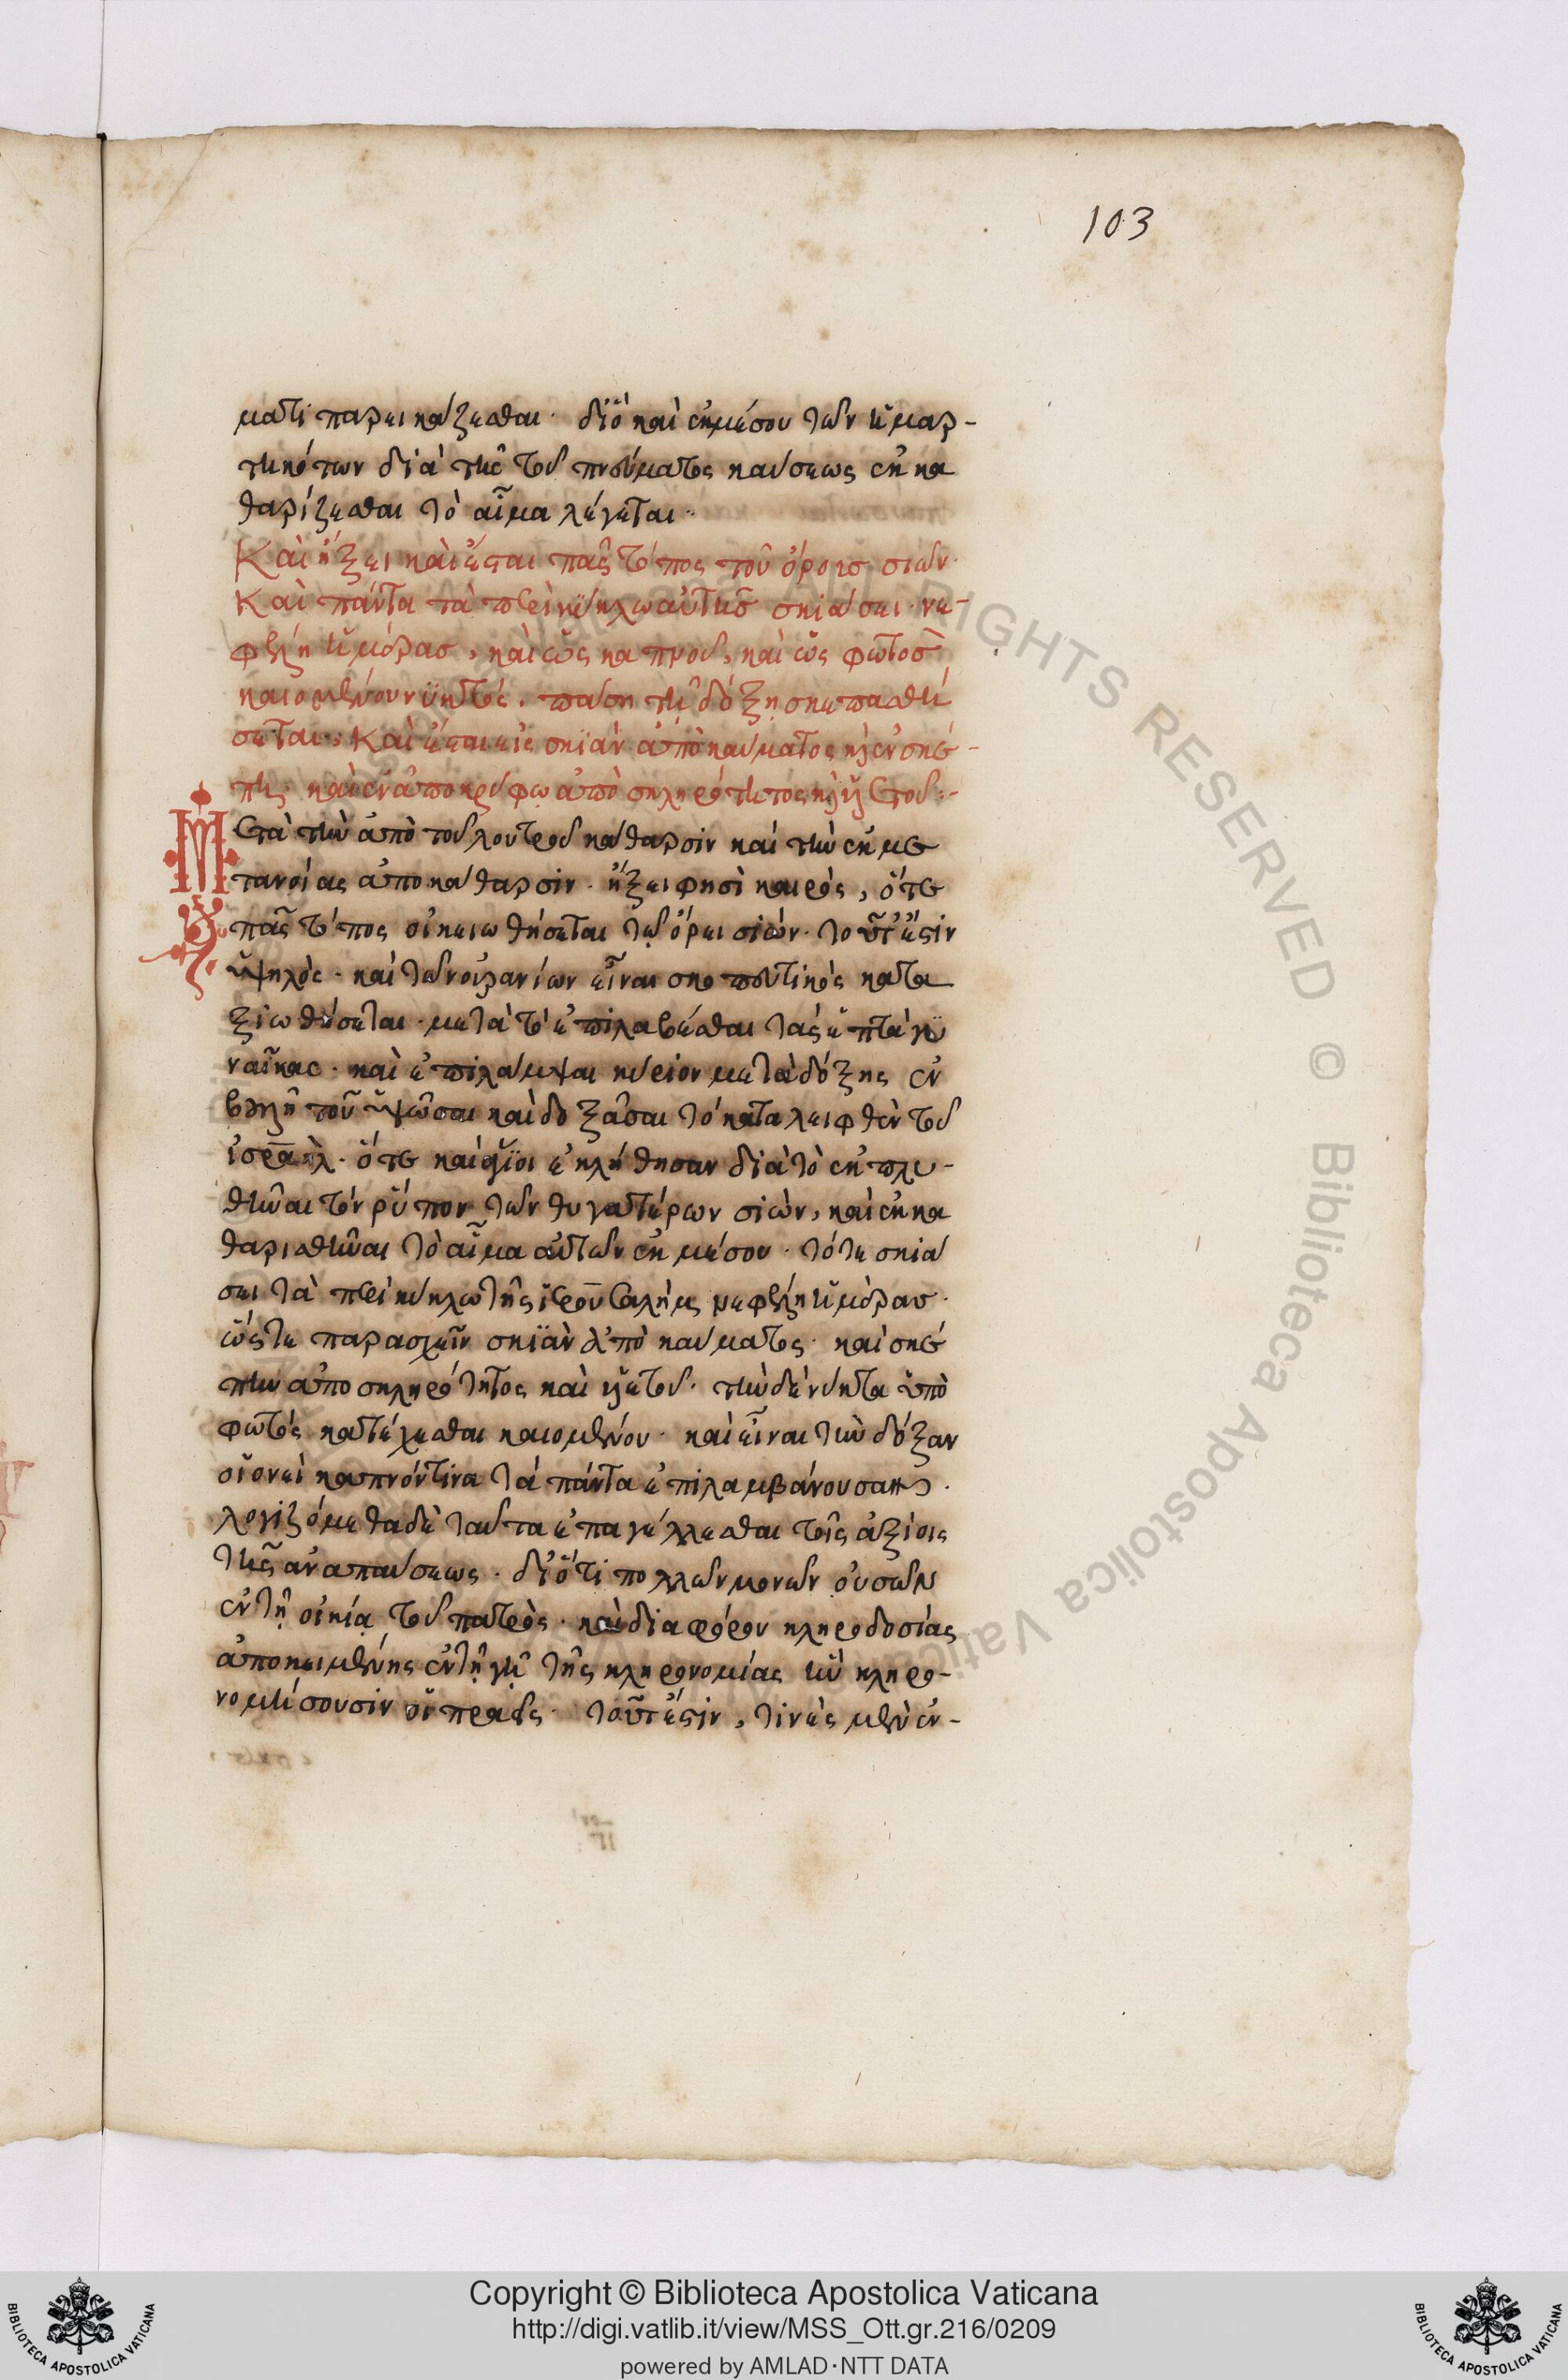 103
ματι παρεικάζεσθαι· διὸ καὶ ἐκ μέσου τῶν ἡμαρ-
τηκότων διὰ τῆς τοῦ πνεύματος καύσεως ἐκκα
θαρίζεσθαι τὸ αἷμα λέγεται·
Καὶ ἥξει καὶ ἔσται πᾶς τόπος τοῦ ὄρους σιών·
Καὶ πάντα τὰ περὶ κύκλω αὐτῆς σκιάσει νε-
φέλη ἡμέρας, καὶ ὡς καπνοῦ, καὶ ὡς φωτὸς
καιομένου νϋκτός. πάση τῆ δόξη σκεπασθή
σεται· Καὶ ἔσται εἰς σκϊὰν ἀπὸ καύματος κ(αὶ) ἐν σκέ-
πης καὶ ἐν ἀποκρύφω ἀπὸ σκληρότητος κ(αὶ) ὑετοῦ:-
Μετὰ τὴν ἀπὸ τοῦ λουτροῦ κάθαρσιν καὶ τὴν ἐκ με
τανοίας ἀποκάθαρσιν· ἥξει φησὶ καιρὸς, ὅτε
πᾶς τόπος οἰκειωθήσεται τῷ ὄρει σιών· τοῦτ' ἔστιν
ὑψηλὸς· καὶ τῶν οὐρανίων εἶναι σκοπευτικὸς κατα
ξιωθήσεται· μετὰ τὸ ἐπιλαβέσθαι τὰς ἑπτὰ γϋ
ναῖκας· καὶ ἐπιλάμψαι κύριον μετὰ δόξης ἐν
βουλῆ τοῦ ὑψῶσαι καὶ δοξᾶσαι τὸ καταλειφθὲν τοῦ
ἰσραὴλ· ὅτε καὶ ἅγϊοι ἐκλήθησαν διὰ τὸ ἐκπλυ-
θῆναι τὸν ῥύπον τῶν θυγατέρων σιὼν, καὶ ἐκκα
θαρισθῆναι τὸ αἷμα αὐτῶν ἐκ μέσου· τότε σκιά
σει τὰ περὶ κύκλω τῆς ἱερουσαλήμ νεφέλη ἡμέρας·
ὥστε παρασχεῖν σκϊὰν ἀπὸ καύματος· καὶ σκέ
πην ἀπο σκληρότητος καὶ ὑετοῦ· τὴν δὲ νύκτα ὑπὸ
φωτὸς κατέχεσθαι καιομένου· καὶ εἶναι τὴν δόξαν
οἱονεὶ καπνόν τινα τὰ πάντα ἐπιλαμβάνουσαν·
λογιζόμεθα δὲ ταῦτα ἐπαγέλλεσθαι τοῖς ἀξίοις
τῆς ἀναπαύσεως· διότι πολλῶν μονῶν οὐσῶν
ἐν τῆ οἰκία τοῦ πατρὸς· καὶ διαφόρου κληροδοσίας
ἀποκειμένης ἐν τῆ γῆ τῆς κληρονομίας ἣν κληρο-
νομήσουσιν οἱ πραεῖς· τοῦτ' ἔστιν, τινὲς μὲν ἐν-
RIGHTS RESERVED © Biblioteca Apostolica Vaticana
BIBLIOTECA APOSTOLICA VATICANA
Copyright © Biblioteca Apostolica Vaticana
http://digi.vatlib.it/view/MSS_Ott.gr.216/0209
powered by AMLAD·NTT DATA
BIBLIOTECA APOSTOLICA VATICANA